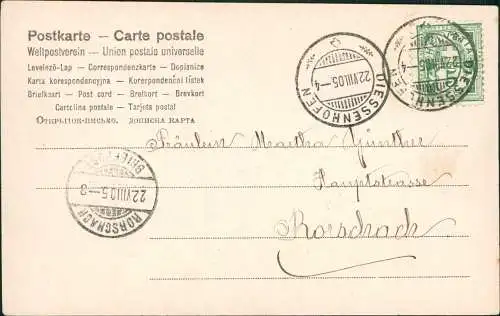 Postkarte – Carte postale
Weltpostverein – Union postale universelle
Levelezö-Lap – Correspondenzkarte – Dopisnice
Karta korespondencyjna – Korespondenční lístek
Briefkaart – Post card – Brefkort – Brevkort
Cartolina postale – Tarjeta postal
Открытое письмо. Дописна карта
DIESSENHOFEN
22.VIII.05.–4
DIESSENHOFEN
Fräulein Martha Günther
Hauptstrasse
Rorschach
RORSCHACH
22.VIII.05–8